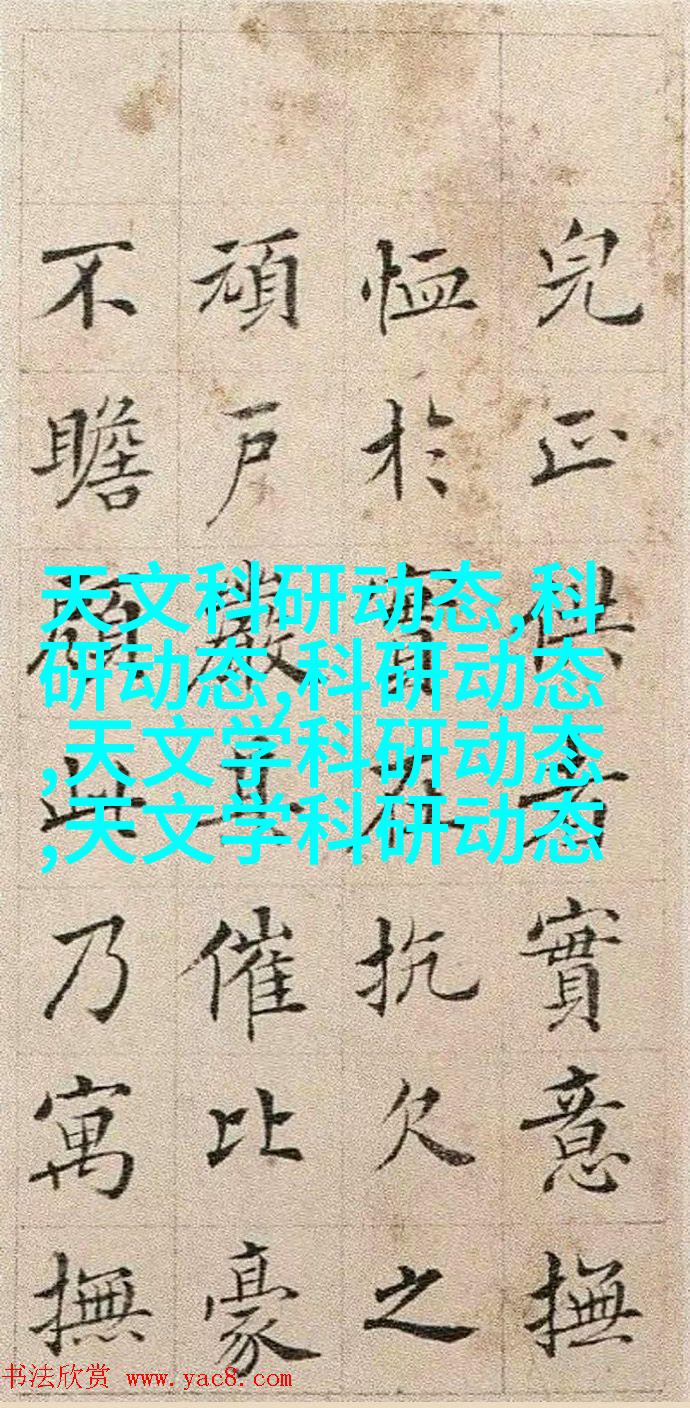 完正供者實意撫
恤於實在抗欠之
頑戶嚴其催比豪
不瞻顧此乃寓撫
天文科研动态,科
研动态,科研动态
,天文学科研动态
,天文学科研动态
书法欣赏 www.yac8.com